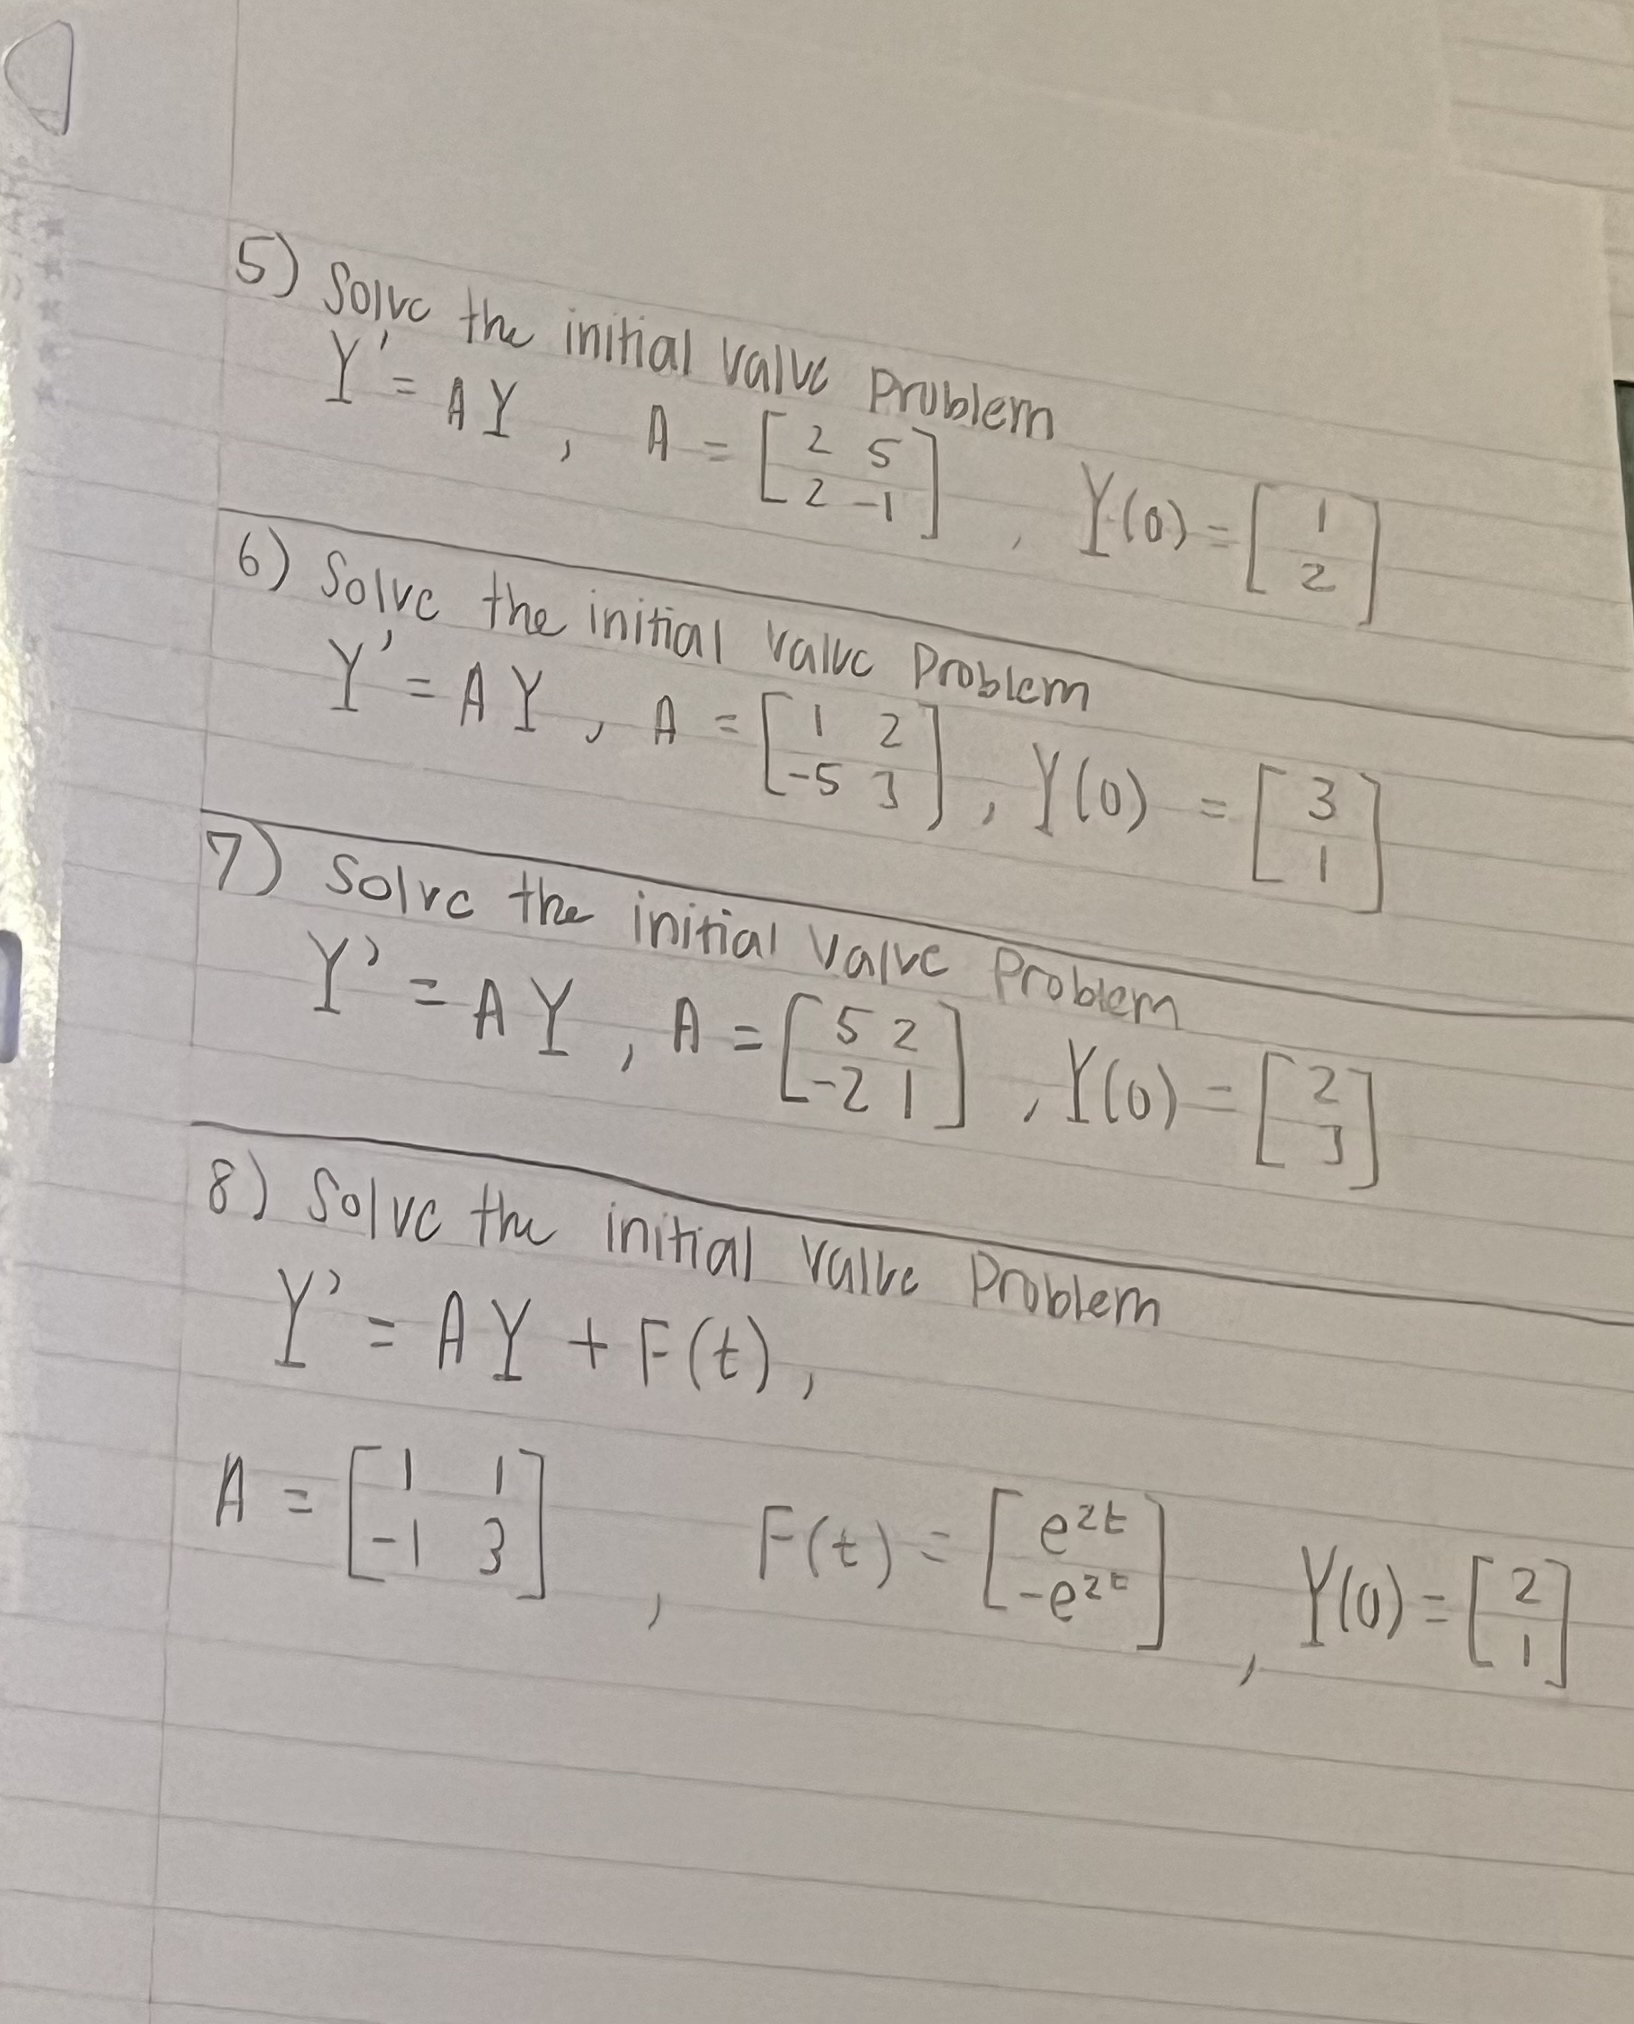 5) Solve the initial value Problem
Y' = AY, A = [2 5; 2 -1], Y(0) = [1; 2]
6) Solve the initial value Problem
Y' = AY, A = [1 2; -5 3], Y(0) = [3; 1]
7) Solve the initial value Problem
Y' = AY, A = [5 2; -2 1], Y(0) = [2; 3]
8) Solve the initial value Problem
Y' = AY + F(t),
A = [1 1; -1 3], F(t) = [e^{2t}; -e^{2t}], Y(0) = [2; 1]